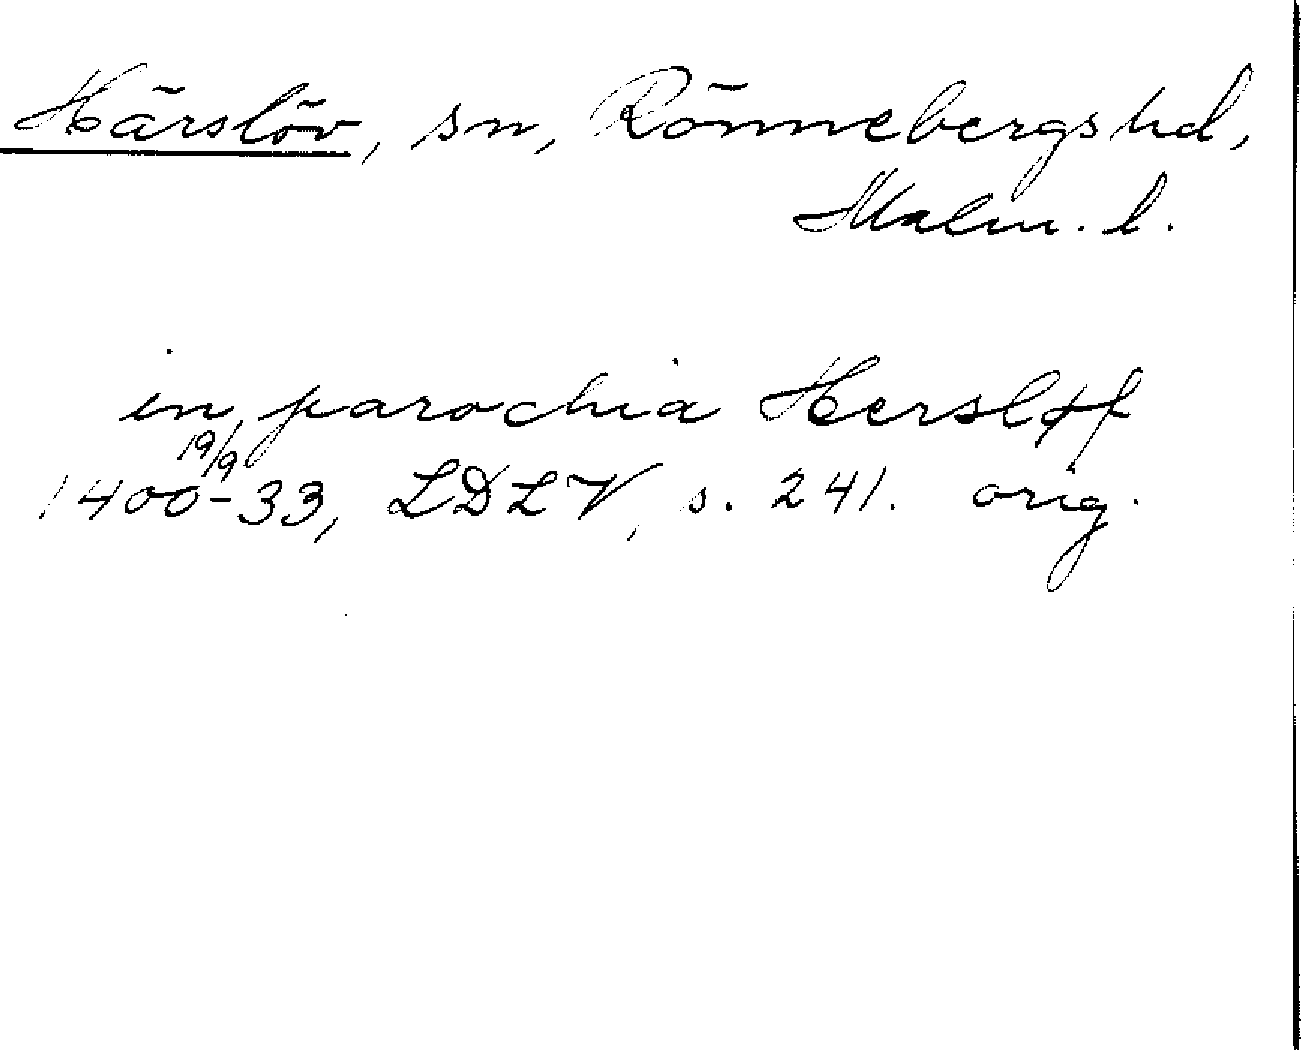 Härslöv, sn, Rönnebergs hd,
Malm. l.
in parochia Hersløf
19/9
1400-33, LDLV, s. 241. orig.